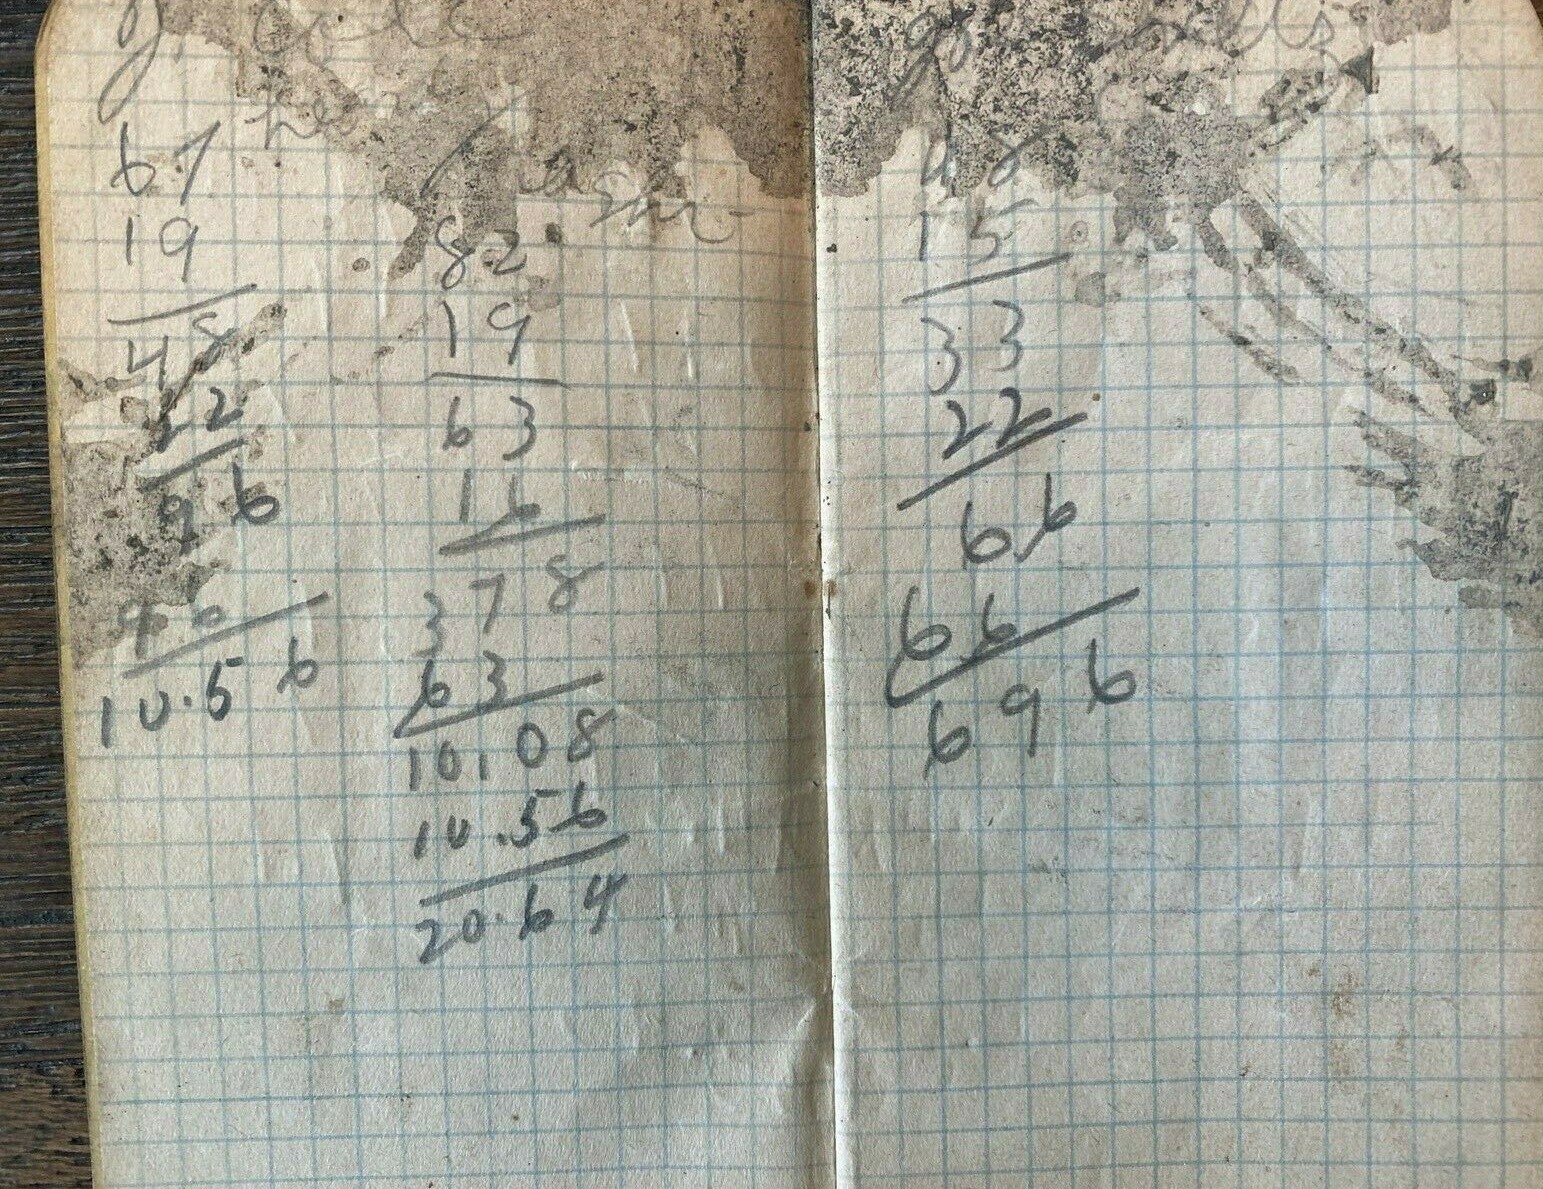 67
19
48
22
96
96
10.56
82
19
63
16
378
63
10.08
10.56
20.64
48
15
33
22
66
66
696